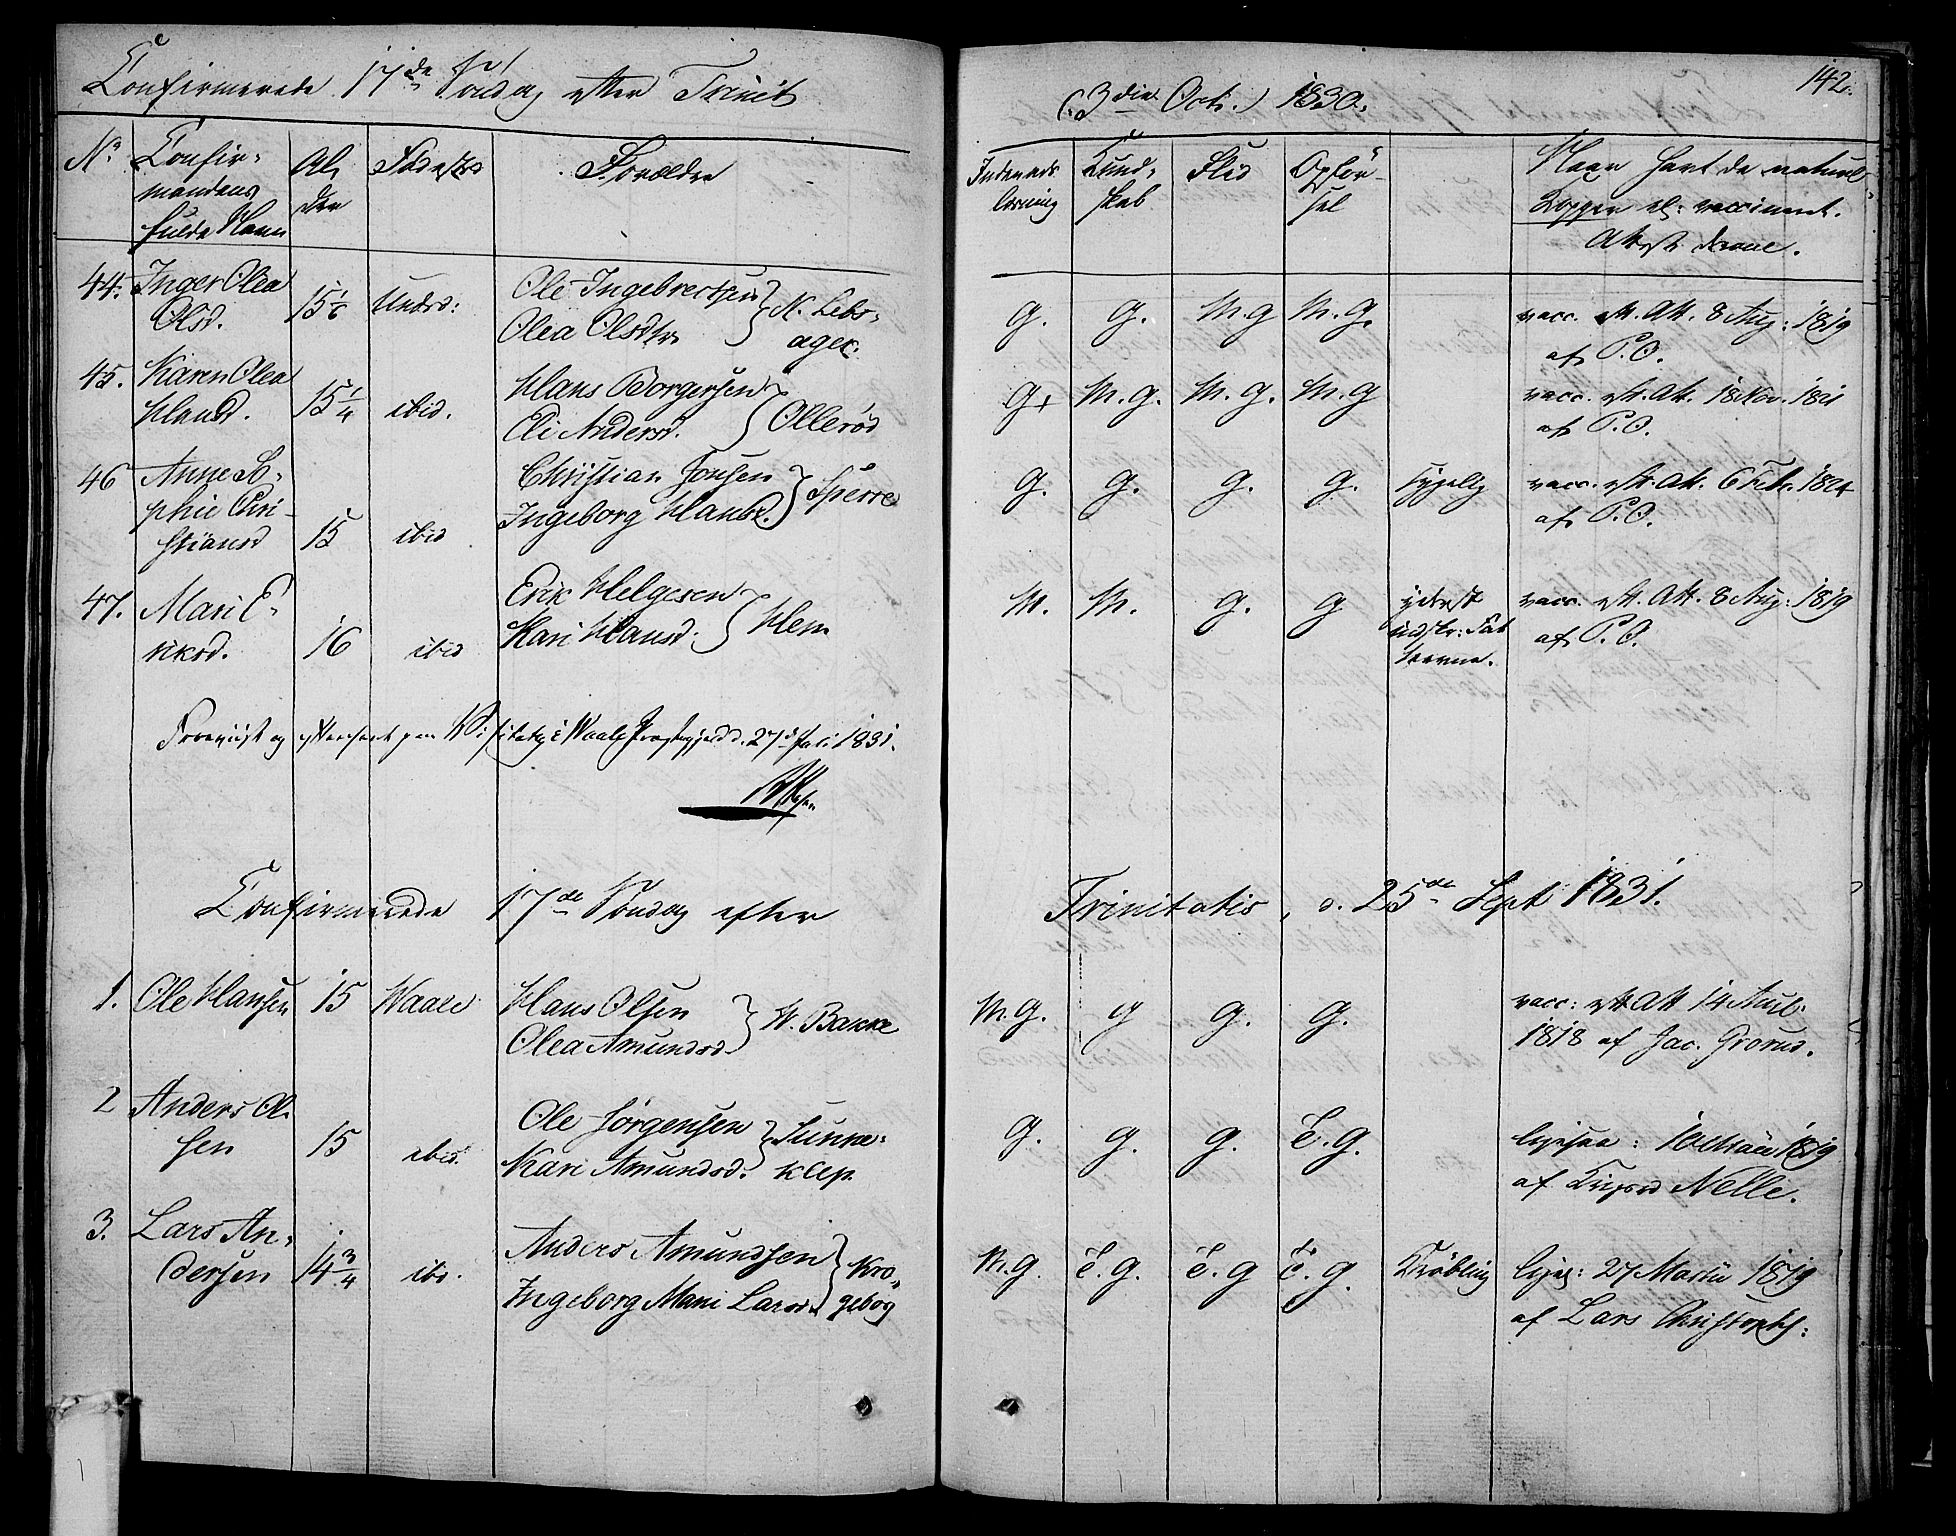 Confirmerede 17de Søndag efter Trinit
(3die Octr.) 1830.
142.
No
Confir-
mandens
fulde Navn
Al-
der
Fødested
Forældre
Indenads
læsning
Kund-
skab
Flid
Opfør-
sel
Naar havt de naturl.
Kopper el: vaccineret.
Attest derom.
44. Inger Olea
Olsd.
15 1/6
Undrd:
Ole Ingebrectsen
Olea Olsdtr
N. Lebs-
ager.
G. G. M.G M.G.
vacc. elt. Att. 8 Aug: 1819
af P.O.
45. Karen Olea
Hansd.
15 1/4
ibid.
Hans Borgersen
Eli Andersd.
Ollerød
G. M.G. M.G. M.G
vacc. elt. Att. 18 Nov. 1821
af P.O.
46 Anne So-
phie Chri-
stiansd
15
ibid
Christian Jonsen
Ingeborg Hansd.
Sperre
G. G. G. G.
sygelig
vacc. elt. Att. 6 Feb. 1824
af P.O.
47. Mari E-
riksd.
16
ibid
Erik Helgesen
Kari Hansd.
Hem
M. M. G. G
yderst
vacc. elt. Att. 8 Aug: 1819
af P.O.
Foreviist og efterseet paa Visitatz i Waale Præstegjeld d. 27de Juli 1831.
Confirmerede 17de Søndag efter
Trinitatis, d. 25de Sept 1831.
1. Ole Hansen
15
Waale
Hans Olsen
Olea Amundsd.
W. Bakke
M.G. G G. G.
vacc: elt. Att 14 Aug.
1818 af Jac. Grorud.
2 Anders Ol-
sen
15
ibid.
Ole Jørgensen
Kari Amundsd.
Sunne-
klep
G. G. G. T.G.
ligesaa: 10 Maii 1819
af Nelle.
3. Lars An-
dersen
14 3/4
ibd.
Anders Amundsen
Ingeborg Marie Larsd.
Kro-
gebog
M.G. T.G. T.G T.G.
Krøbling
liges: 27 Martii 1819
af Lars Christophs: